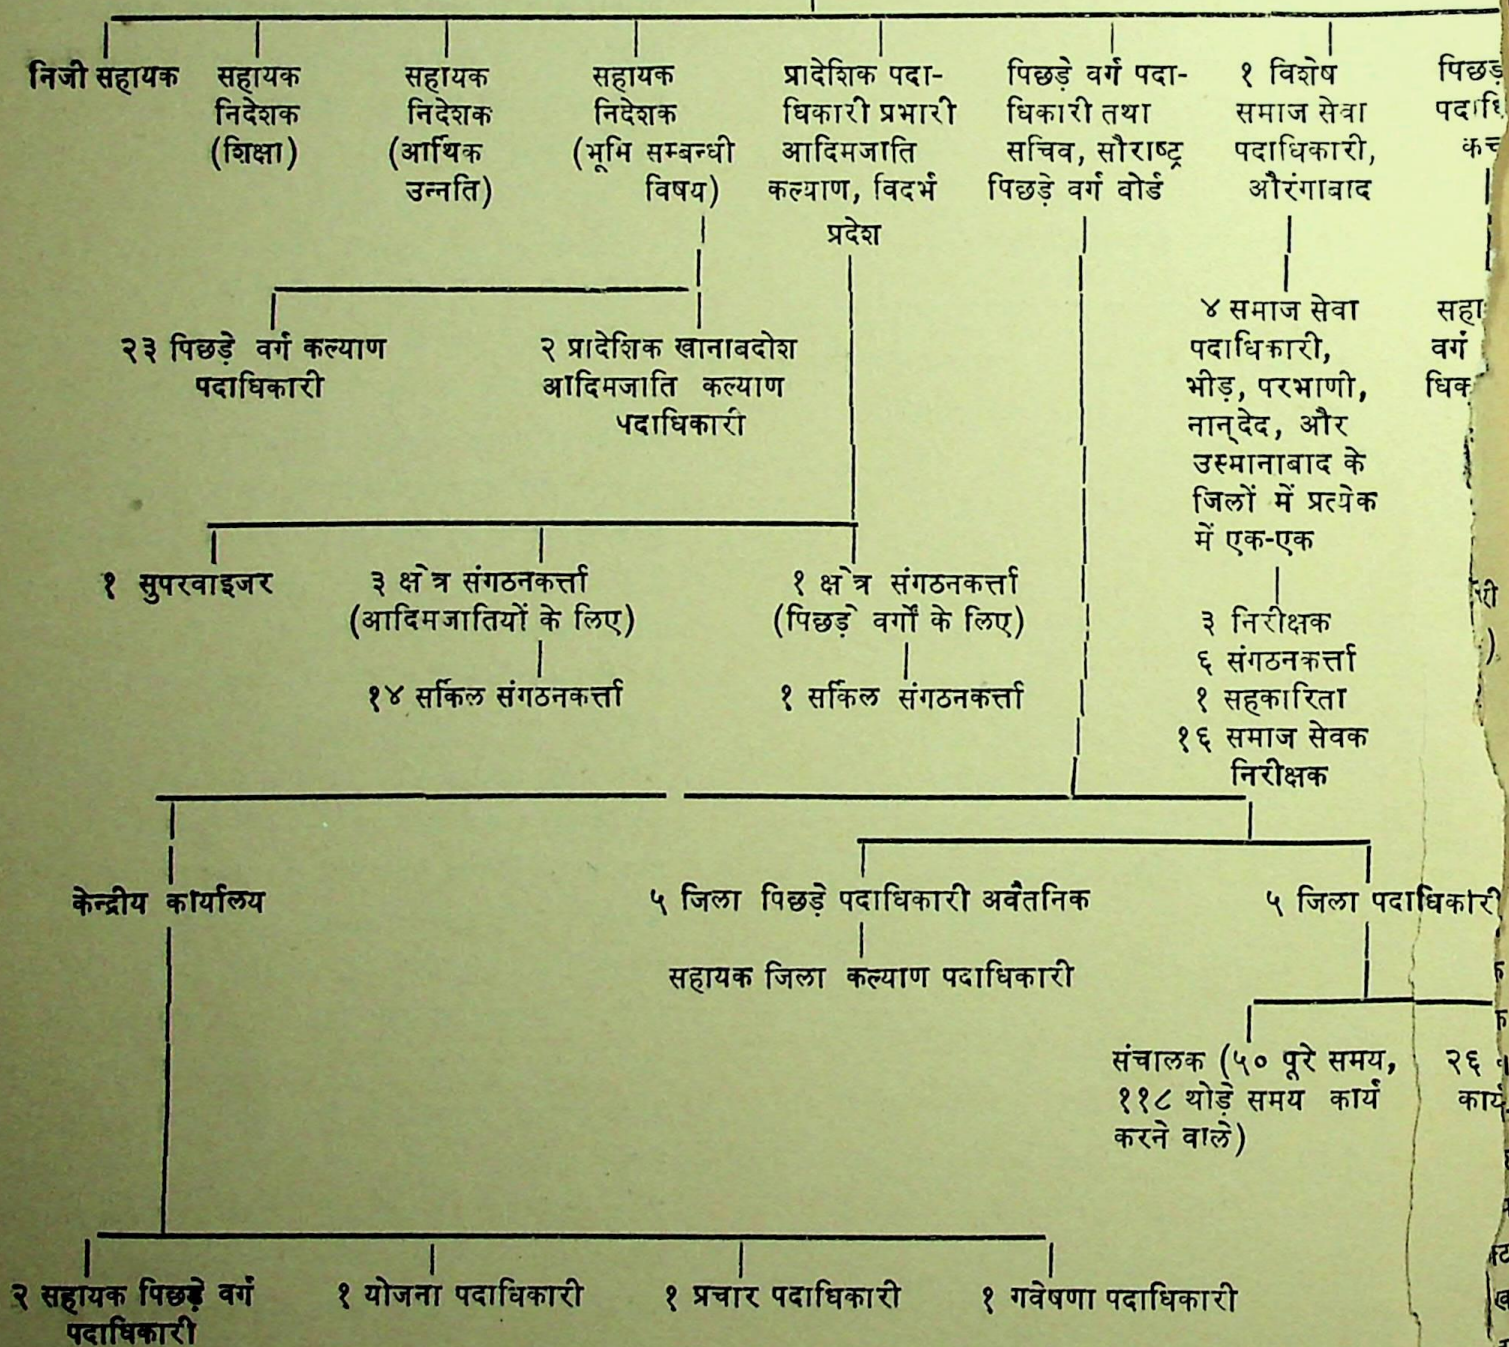 निजी सहायक
सहायक
निदेशक
(शिक्षा)
सहायक
निदेशक
(आर्थिक
उन्नति)
सहायक
निदेशक
(भूमि सम्बन्धी
विषय)
प्रादेशिक पदा-
धिकारी प्रभारी
आदिमजाति
कल्याण, विदर्भ
प्रदेश
पिछड़े वर्ग पदा-
धिकारी तथा
सचिव, सौराष्ट्र
पिछड़े वर्ग बोर्ड
१ विशेष
समाज सेवा
पदाधिकारी,
औरंगाबाद
२३ पिछड़े वर्ग कल्याण
पदाधिकारी
२ प्रादेशिक खानाबदोश
आदिमजाति कल्याण
पदाधिकारी
४ समाज सेवा
पदाधिकारी,
भीड़, परभाणी,
नान्देद, और
उस्मानाबाद के
जिलों में प्रत्येक
में एक-एक
वर्ग
१ सुपरवाइजर
३ क्षेत्र संगठनकर्त्ता
(आदिमजातियों के लिए)
१४ सर्किल संगठनकर्त्ता
१ क्षेत्र संगठनकर्त्ता
(पिछड़े वर्गों के लिए)
१ सर्किल संगठनकर्त्ता
३ निरीक्षक
६ संगठनकर्त्ता
१ सहकारिता
१६ समाज सेवक
निरीक्षक
केन्द्रीय कार्यालय
५ जिला पिछड़े पदाधिकारी अवैतनिक
सहायक जिला कल्याण पदाधिकारी
५ जिला पदाधिकारी
संचालक (५० पूरे समय,
११८ थोड़े समय कार्य
करने वाले)
२६
२ सहायक पिछड़े वर्ग
पदाधिकारी
१ योजना पदाधिकारी
१ प्रचार पदाधिकारी
१ गवेषणा पदाधिकारी